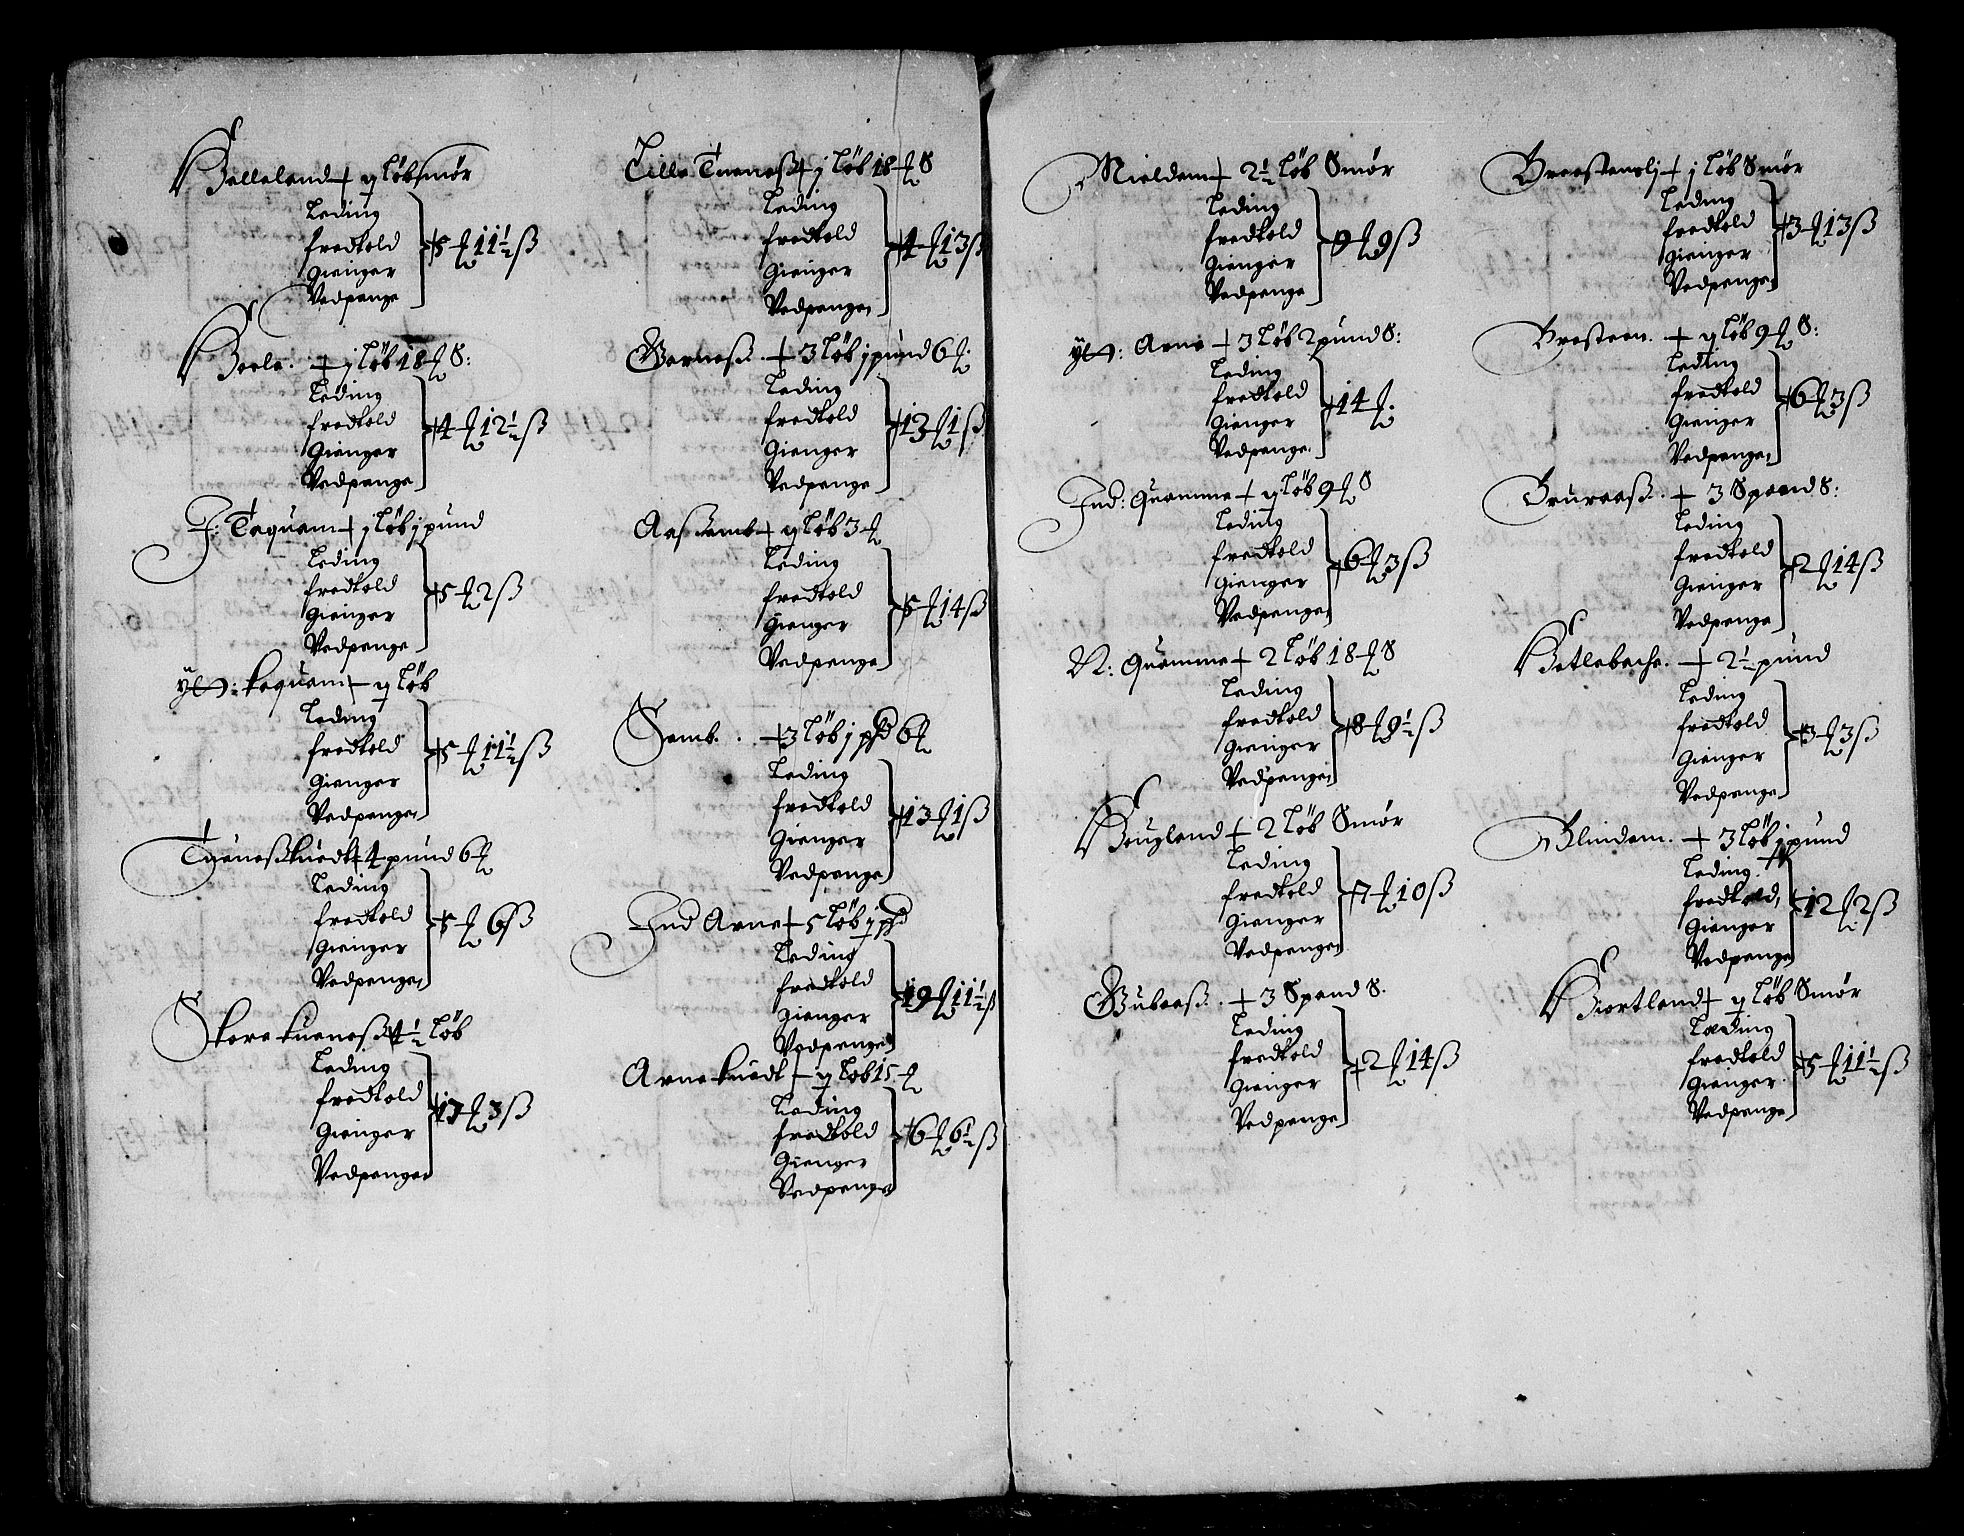 Helleland ij Løb smør
Leding
fredtold
Gienger
Vedpenge
5 ₰ 11½ ß
Hoele. j Løb 18 ₰ S:
Leding
fredtold
Gienger
Vedpenge
4 ₰ 12½ ß
I: Taquam j Løb j pund
Leding
fredtold
Gienger
Vedpenge
5 ₰ 2 ß
ytt: taquam ij Løb
Leding
fredtold
Gienger
Vedpenge
5 ₰ 11½ ß
Tuenesßtuedt 4 pund 6 ₰
Leding
fredtold
Gienger
Vedpenge
5 ₰ 6 ß
Store tueneß 4½ Løb
Leding
fredtold
Gienger
Vedpenge
17 ₰ 3 ß
Lille Tueneß j Løb 18 ₰ S
Leding
fredtold
Gienger
Vedpenge
4 ₰ 13 ß
Garneß. 3 Løb j pund 6 ₰.
Leding
fredtold
Gienger
Vedpenge
13 ₰ 1 ß
Aaßtamb ij Løb 3 ₰
Leding
fredtold
Gienger
Vedpenge
5 ₰ 14 ß
Samb. 3 Løb j pd 6 ₰
Leding
fredtold
Gienger
Vedpenge
13 ₰ 1 ß
Ind Arne 5 Løb j pd
Leding
fredtold
Gienger
Vedpenge
19 ₰ 11½ ß
Arne tuedt ij Løb 15 ₰
Leding
fredtold
Gienger
Vedpenge
6 ₰ 6½ ß
Mieldem 2½ Løb Smør
Leding
fredtold
Gienger
Vedpenge
9 ₰ 9 ß
ytt: Arne 3 Løb 2 pund S:
Leding
fredtold
Gienger
Vedpenge
14 ₰.
Ind: Quamme ij Løb 9 ₰ S
Leding
fredtold
Gienger
Vedpenge
6 ₰ 3 ß
N: Quamme 2 Løb 18 ₰ S
Leding
fredtold
Gienger
Vedpenge
8 ₰ 9½ ß
Hougland 2 Løb Smør
Leding
fredtold
Gienger
Vedpenge
7 ₰ 10 ß
Gubaaß. 3 Spand S.
Leding
fredtold
Gienger
Vedpenge
2 ₰ 14 ß
Breestenslj j Løb Smør
Leding
fredtold
Gienger
Vedpenge
3 ₰ 13 ß
Bresteen. ij Løb 9 ₰ S:
Leding
fredtold
Gienger
Vedpenge
6 ₰ 3 ß
Bruraaß. 3 Spand S:
Leding
fredtold
Gienger
Vedpenge
2 ₰ 14 ß
Hetlebache. 2½ pund
Leding
fredtold
Gienger
Vedpenge
3 ₰ 3 ß
Blindem. 3 Løb j pund
Leding
fredtold
Gienger
Vedpenge
12 ₰ 2 ß
Hiortland ij Løb Smør
Leding
fredtold
Gienger
Vedpenge
5 ₰ 11½ ß